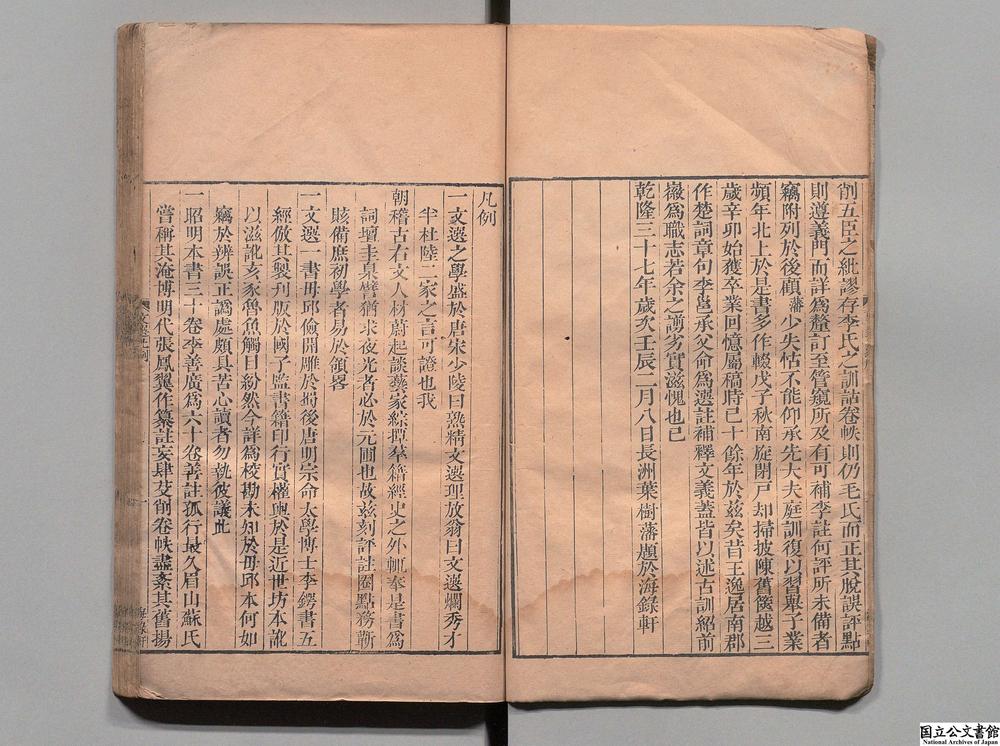 削五臣之紕謬存李氏之訓詁卷帙則仍毛氏而正其脫誤評點
則遵義門而詳爲釐訂至管窺所及有可補李註何評所未備者
竊附列於後顧藩少失怙不能仰承先大夫庭訓復以習舉子業
頻年北上於是書多作輟戊子秋南旋閉戸却掃披陳舊篋越三
歲辛卯始獲卒業回憶屬稿時已十餘年於茲矣昔王逸居南郡
作楚詞章句李邕承父命爲選註補釋文義蓋皆以述古訓紹前
徽爲職志若余之謭劣實滋愧也已
乾隆三十七年歲次壬辰二月八日長洲葉樹藩題於海錄軒
凡例
一文選之學盛於唐宋少陵曰熟精文選理放翁曰文選爛秀才
半杜陸二家之言可證也我
朝稽古右文人材蔚起談藝家綜撢羣籍經史之外輒奉是書爲
詞壇圭臬譬猶求夜光者必於元圃也故茲刻評註圈點務蘄
賅備庶初學者易於領畧
一文選一書毋邱儉開雕於蜀後唐明宗命太學博士李鍔書五
經倣其製刋版於國子監書籍印行實權輿於是近世坊本訛
以滋訛亥豕魯魚觸目紛然今詳爲校勘未知於毋邱本何如
竊於辨誤正譌處頗具苦心讀者勿執彼議此
一昭明本書三十卷李善廣爲六十卷善註孤行最久眉山蘇氏
嘗稱其淹博明代張鳳翼作纂註妄肆芟削卷帙盡紊其舊揚
海錄軒
国立公文書館
National Archives of Japan